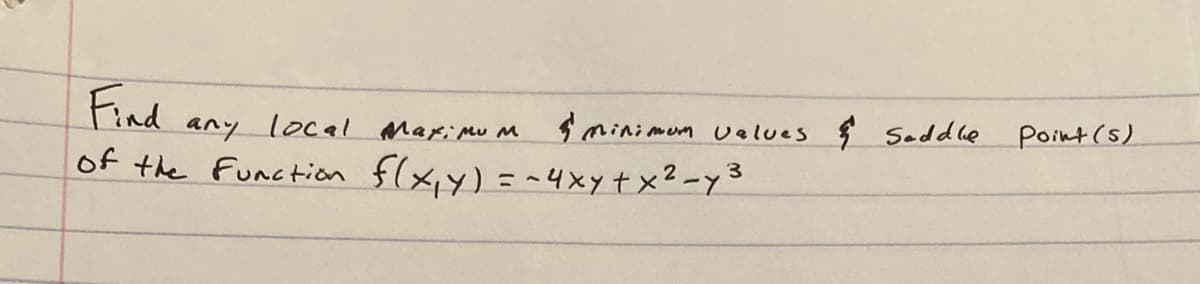 Find any local Maximum & minimum values & Saddle point(s)
of the Function f(x,y) = -4xy + x² - y³